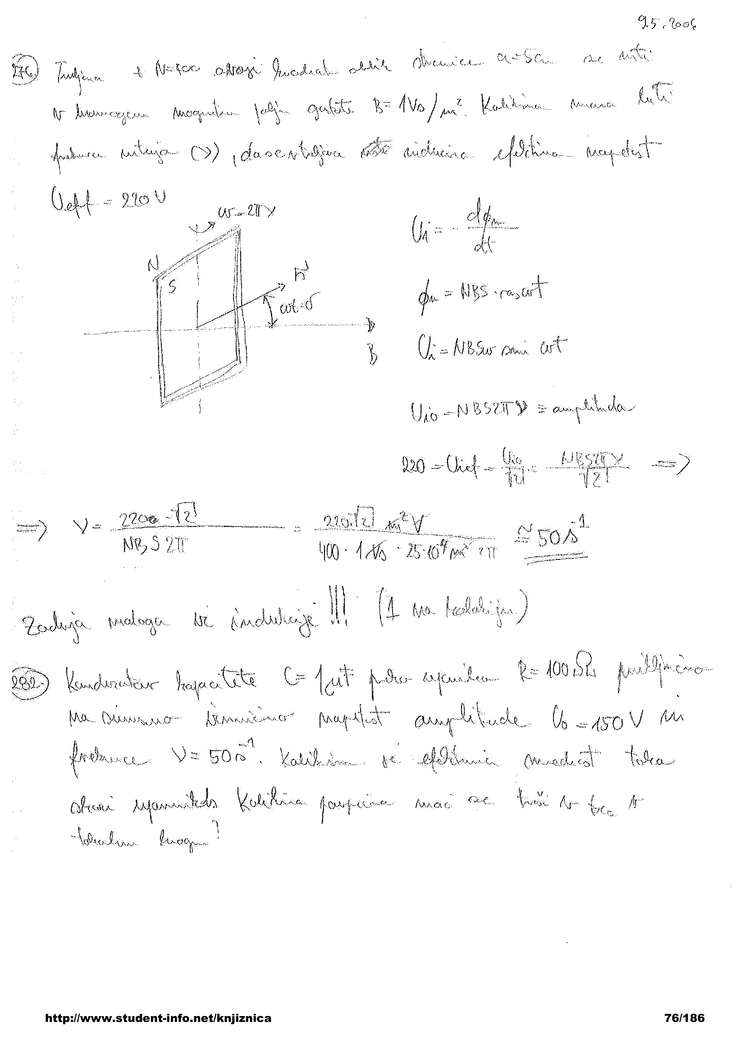 9.5.2006
276. Tuljava z N=400 ovoji kvadratne oblike stranice a=5cm se vrti
v homogenem magnetnem polju gostote B=1Vs/m². Kolikšna mora biti
frekvenca vrtenja (ν), da se v tuljavi inducira efektivna napetost
Ueff = 220V
ω=2πν
N
S
n
ωt=δ
B
Ui = - dφm/dt
φm = NBS·cosωt
Ui = NBSω sin ωt
Uio = NBS2πν ≡ amplituda
220 = Uief = Uio/√2 = NBS2πν/√2 =>
=> ν = 220·√2 / NBS2π = 220·√2 m²V / 400·1Vs·25·10⁻⁴m² 2π ≅ 50s⁻¹
Zadnja naloga iz indukcije!!! (1 na kolokviju)
282. Kondenzator kapacitete C=1μF preko upornika R=100Ω priključimo
na sinusno izmenično napetost amplitude U₀=150V in
frekvence ν=50s⁻¹. Kolikšna je efektivna vrednost toka
skozi upornik Kolikšna povprečna moč se troši v tem
tokokrogu?
http://www.student-info.net/knjiznica
76/186